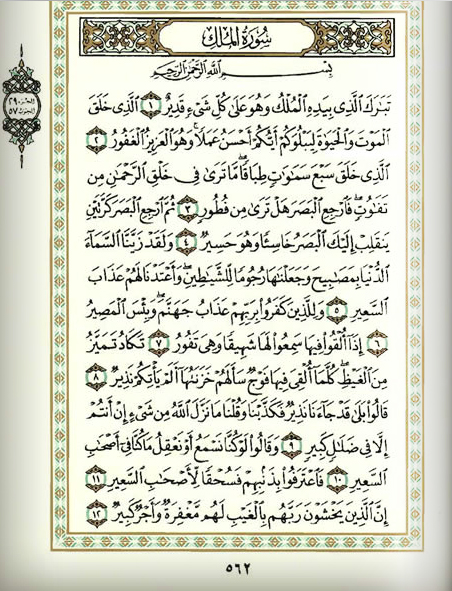 سُورَةُ المُلْكِ
بِسْمِ اللَّهِ الرَّحْمَٰنِ الرَّحِيمِ
تَبَٰرَكَ الَّذِى بِيَدِهِ الْمُلْكُ وَهُوَ عَلَىٰ كُلِّ شَىْءٍ قَدِيرٌ ١ الَّذِى خَلَقَ
الْمَوْتَ وَالْحَيَوٰةَ لِيَبْلُوَكُمْ أَيُّكُمْ أَحْسَنُ عَمَلًا وَهُوَ الْعَزِيزُ الْغَفُورُ ٢
الَّذِى خَلَقَ سَبْعَ سَمَٰوَٰتٍ طِبَاقًا مَّا تَرَىٰ فِى خَلْقِ الرَّحْمَٰنِ مِن
تَفَٰوُتٍ فَارْجِعِ الْبَصَرَ هَلْ تَرَىٰ مِن فُطُورٍ ٣ ثُمَّ ارْجِعِ الْبَصَرَ كَرَّتَيْنِ
يَنقَلِبْ إِلَيْكَ الْبَصَرُ خَاسِئًا وَهُوَ حَسِيرٌ ٤ وَلَقَدْ زَيَّنَّا السَّمَآءَ
الدُّنْيَا بِمَصَٰبِيحَ وَجَعَلْنَٰهَا رُجُومًا لِّلشَّيَٰطِينِ وَأَعْتَدْنَا لَهُمْ عَذَابَ
السَّعِيرِ ٥ وَلِلَّذِينَ كَفَرُوا۟ بِرَبِّهِمْ عَذَابُ جَهَنَّمَ وَبِئْسَ الْمَصِيرُ
٦ إِذَآ أُلْقُوا۟ فِيهَا سَمِعُوا۟ لَهَا شَهِيقًا وَهِىَ تَفُورُ ٧ تَكَادُ تَمَيَّزُ
مِنَ الْغَيْظِ كُلَّمَآ أُلْقِىَ فِيهَا فَوْجٌ سَأَلَهُمْ خَزَنَتُهَآ أَلَمْ يَأْتِكُمْ نَذِيرٌ ٨
قَالُوا۟ بَلَىٰ قَدْ جَآءَنَا نَذِيرٌ فَكَذَّبْنَا وَقُلْنَا مَا نَزَّلَ اللَّهُ مِن شَىْءٍ إِنْ أَنتُمْ
إِلَّا فِى ضَلَٰلٍ كَبِيرٍ ٩ وَقَالُوا۟ لَوْ كُنَّا نَسْمَعُ أَوْ نَعْقِلُ مَا كُنَّا فِىٓ أَصْحَٰبِ
السَّعِيرِ ١٠ فَاعْتَرَفُوا۟ بِذَنۢبِهِمْ فَسُحْقًا لِّأَصْحَٰبِ السَّعِيرِ ١١
إِنَّ الَّذِينَ يَخْشَوْنَ رَبَّهُم بِالْغَيْبِ لَهُم مَّغْفِرَةٌ وَأَجْرٌ كَبِيرٌ ١٢
الجزء ٢٩
الحزب ٥٧
٥٦٢